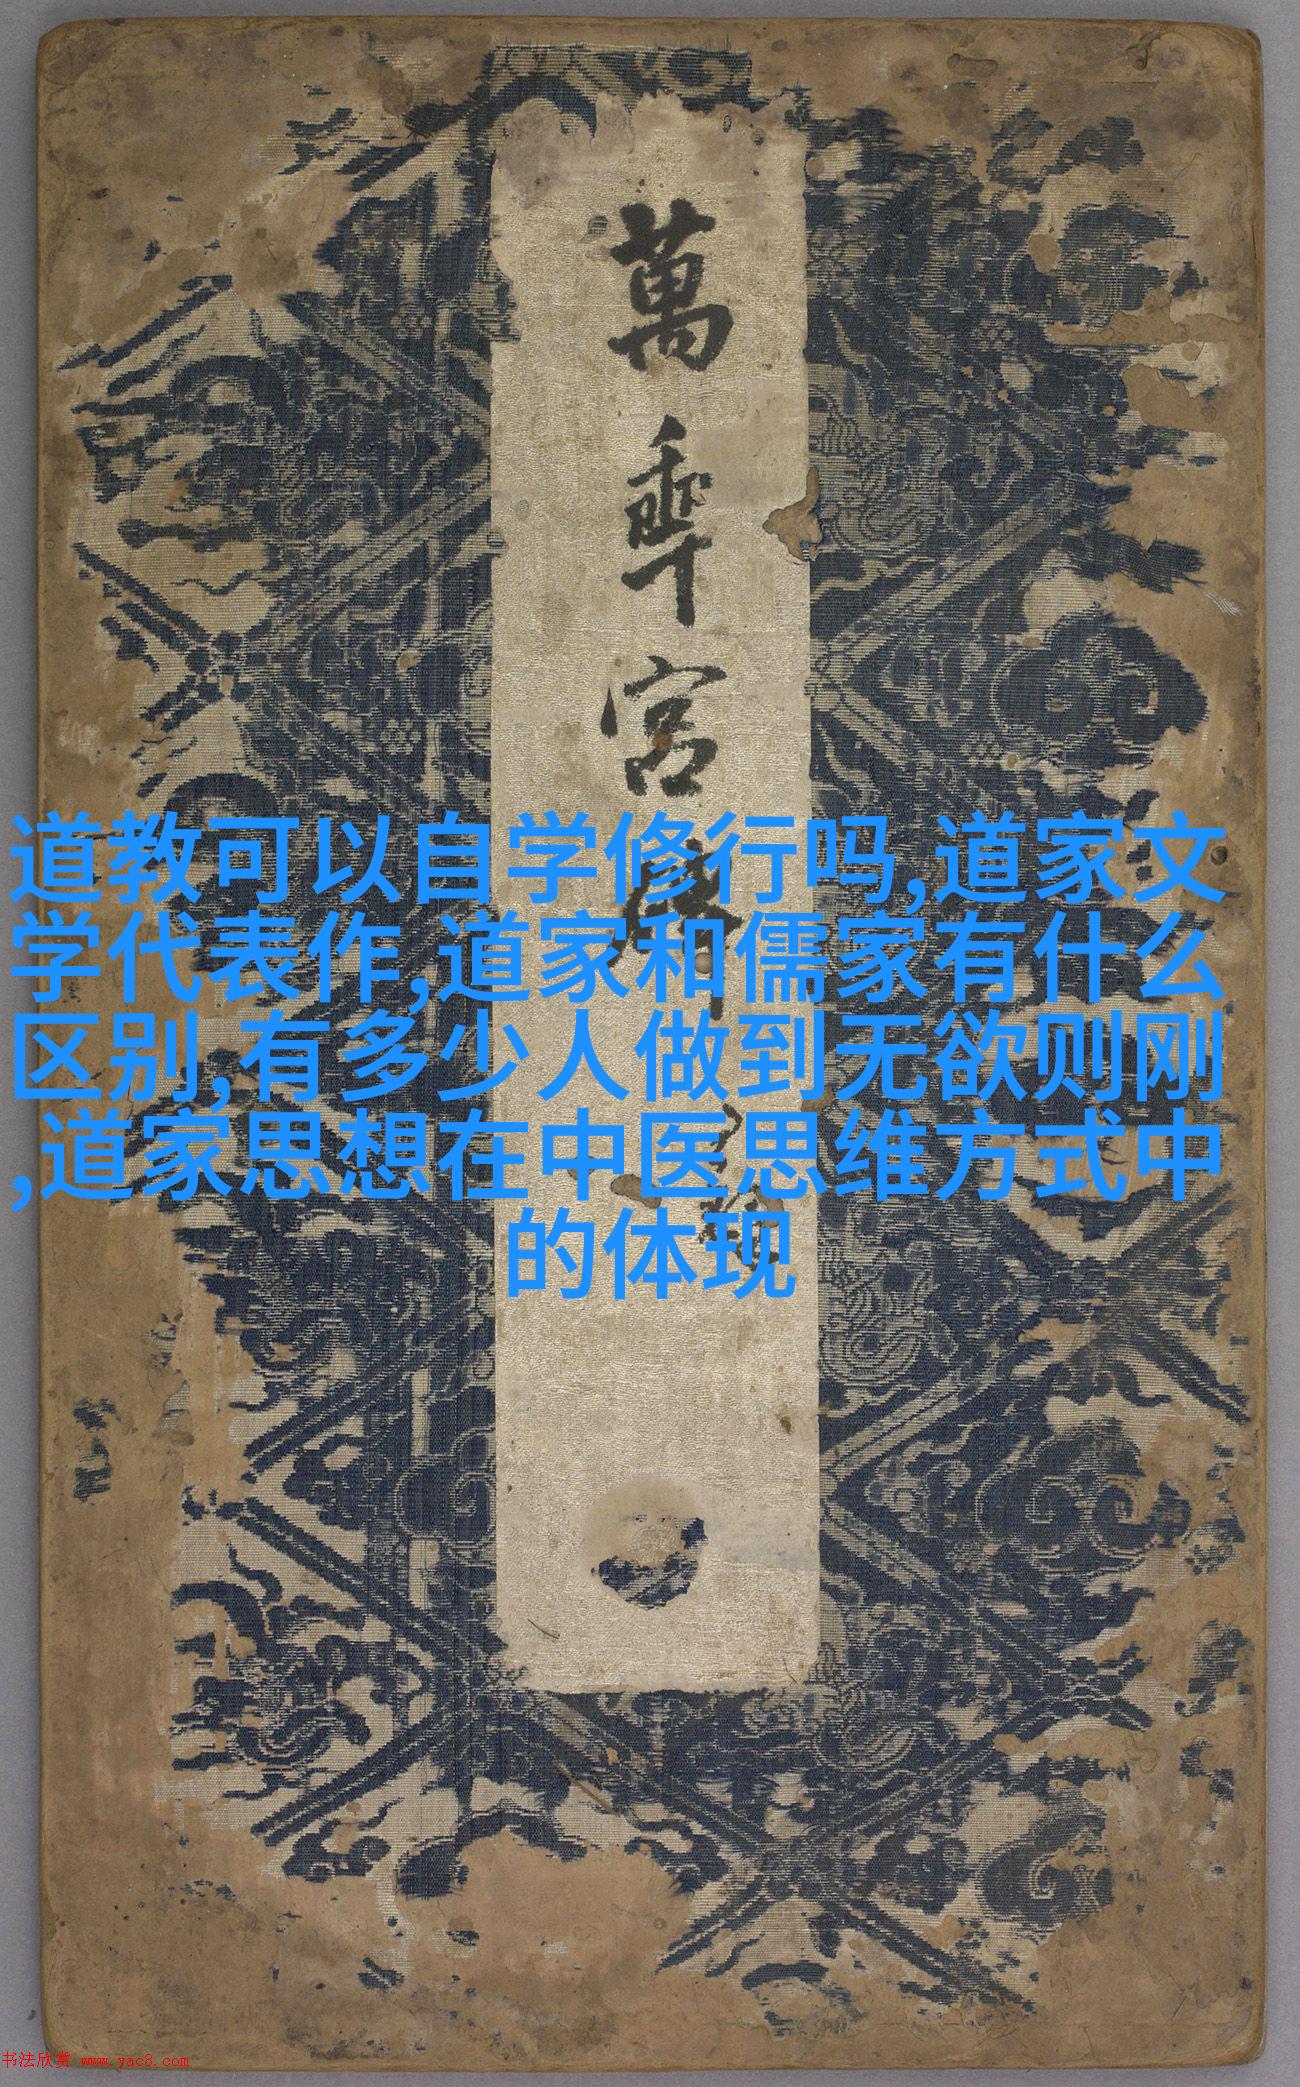 萬
乘
宮
道教可以自学修行吗,道家文
学代表作,道家和儒家有什么
区别,有多少人做到无欲则刚
,道家思想在中医思维方式中
的体现
书法欣赏 www.yac8.com